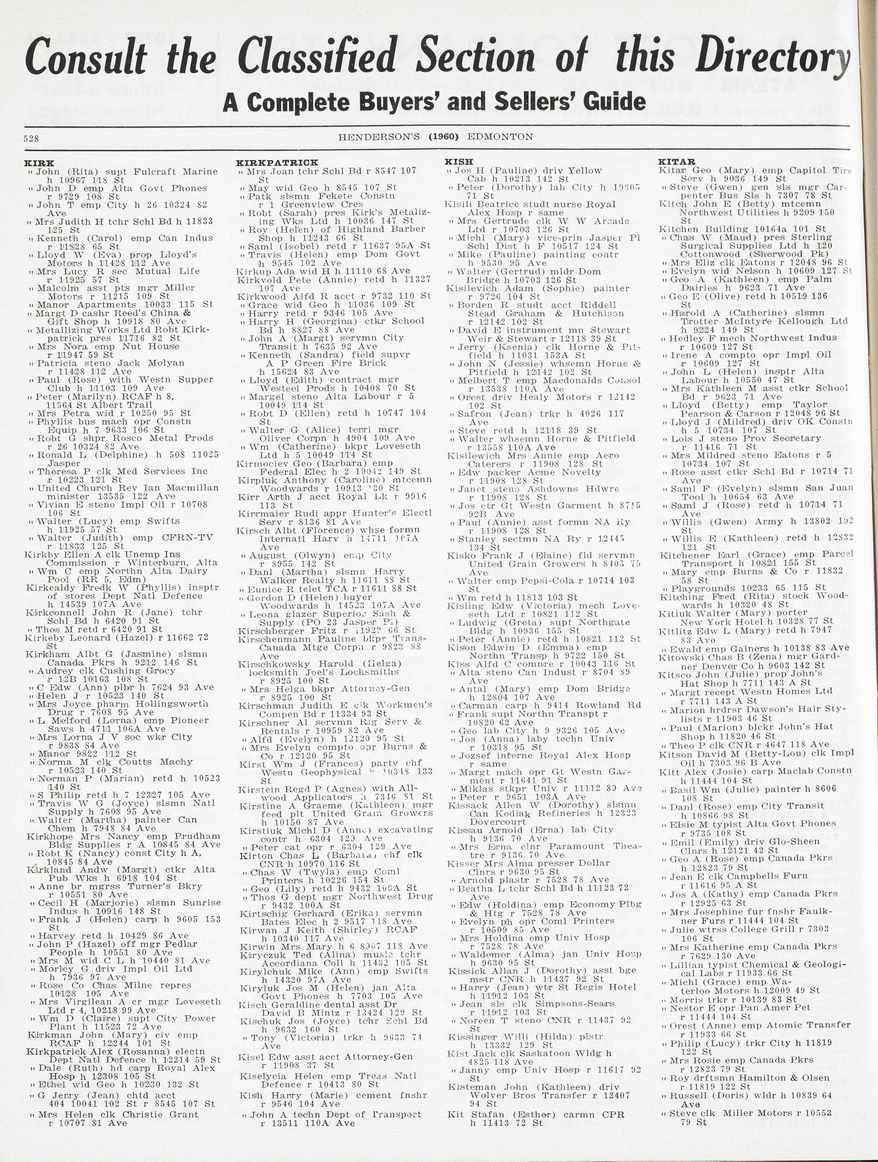 Consult the Classified Section of this Directory
A Complete Buyers' and Sellers' Guide
528
HENDERSON'S (1960) EDMONTON
KIRK
" John (Rita) supt Fulcraft Marine
h 10967 118 St
" John D emp Alta Govt Phones
r 9729 108 St
" John T emp City h 26 10324 82
Ave
" Mrs Judith H tchr Schl Bd h 11833
125 St
" Kenneth (Carol) emp Can Indus
r 11828 65 St
" Lloyd W (Eva) prop Lloyd's
Motors h 11428 112 Ave
" Mrs Lucy R sec Mutual Life
r 11925 57 St
" Malcolm asst pts mgr Miller
Motors r 11215 109 St
" Manor Apartments 10033 115 St
" Margt D cashr Reed's China &
Gift Shop h 10918 80 Ave
" Metallizing Works Ltd Robt Kirk-
patrick pres 11716 82 St
" Mrs Nora emp Nut House
r 11947 59 St
" Patricia steno Jack Molyan
r 11428 112 Ave
" Paul (Rose) with Westn Supper
Club h 11103 109 Ave
" Peter (Marilyn) RCAF h 8,
11564 St Albert Trail
" Mrs Petra wid r 10250 95 St
" Phyllis bus mach opr Constn
Equip h 7 9633 106 St
" Robt G shpr Rosco Metal Prods
r 26 10324 82 Ave
" Ronald L (Delphine) h 508 11025
Jasper
" Theresa P clk Med Services Inc
r 10223 121 St
" United Church Rev Ian Macmillan
minister 13535 122 Ave
" Vivian E steno Impl Oil r 10708
106 St
" Walter (Lucy) emp Swifts
h 11925 57 St
" Walter (Judith) emp CFRN-TV
r 11833 125 St
Kirkby Ellen A clk Unemp Ins
Commission r Winterburn, Alta
" Wm C emp Northn Alta Dairy
Pool (RR 5, Edm)
Kirkcaldy Fredk W (Phyllis) insptr
of stores Dept Natl Defence
h 14539 107A Ave
Kirkconnell John R (Jane) tchr
Schl Bd h 6420 91 St
" Thos M retd r 6420 91 St
Kirkeby Leonard (Hazel) r 11662 72
St
Kirkham Albt G (Jasmine) slsmn
Canada Pkrs h 9212 146 St
" Audrey clk Cushing Grocy
r 12B 10163 108 St
" C Edw (Ann) plbr h 7624 93 Ave
" Helen J r 10523 140 St
" Mrs Joyce pharm Hollingsworth
Drug r 7608 95 Ave
" L Melford (Lorna) emp Pioneer
Saws h 4711 106A Ave
" Mrs Lorna J V soc wkr City
r 9838 84 Ave
" Manor 9822 112 St
" Norma M clk Coutts Machy
r 10523 140 St
" Norman P (Marian) retd h 10523
140 St
" S Philip retd h 7 12327 105 Ave
" Travis W G (Joyce) slsmn Natl
Supply h 7608 95 Ave
" Walter (Martha) painter Can
Chem h 7948 84 Ave
Kirkhope Mrs Nancy emp Prudham
Bldg Supplies r A 10845 84 Ave
" Robt K (Nancy) const City h A,
10845 84 Ave
Kirkland Andw (Margt) ctkr Alta
Pub Wks h 6918 104 St
" Anne br mgrss Turner's Bkry
r 10551 80 Ave
" Cecil H (Marjorie) slsmn Sunrise
Indus h 10916 148 St
" Frank J (Helen) carp h 9605 153
St
" Harvey retd h 10429 86 Ave
" John P (Hazel) off mgr Pedlar
People h 10551 80 Ave
" Mrs M wid C L h 10440 81 Ave
" Morley G driv Impl Oil Ltd
h 7936 97 Ave
" Rose Co Chas Milne repres
10128 105 Ave
" Mrs Virgilean A cr mgr Loveseth
Ltd r 4, 10218 99 Ave
" Wm D (Claire) supt City Power
Plant h 11523 72 Ave
Kirkman John (Mary) civ emp
RCAF h 12244 101 St
Kirkpatrick Alex (Rosanna) electn
Dept Natl Defence h 12214 59 St
" Dale (Ruth) hd carp Royal Alex
Hosp h 12308 105 St
" Ethel wid Geo h 10230 132 St
" G Jerry (Jean) chtd acct
404 10041 102 St r 8545 107 St
" Mrs Helen clk Christie Grant
r 10707 81 Ave
KIRKPATRICK
" Mrs Joan tchr Schl Bd r 8547 107
St
" May wid Geo h 8545 107 St
" Patk slsmn Fekete Constn
r 1 Greenview Cres
" Robt (Sarah) pres Kirk's Metaliz-
ing Wks Ltd h 10036 147 St
" Roy (Helen) of Highland Barber
Shop h 11243 66 St
" Saml (Isobel) retd r 11637 95A St
" Travis (Helen) emp Dom Govt
h 9545 102 Ave
Kirkup Ada wid H h 11110 68 Ave
Kirkvold Pete (Annie) retd h 11327
107 Ave
Kirkwood Alfd R acct r 9732 110 St
" Grace wid Geo h 11036 109 St
" Harry retd r 9346 105 Ave
" Harry H (Georgina) ctkr School
Bd h 8827 88 Ave
" John A (Margt) servmn City
Transit h 7635 92 Ave
" Kenneth (Sandra) field supvr
A P Green Fire Brick
h 15624 83 Ave
" Lloyd (Edith) contract mgr
Westeel Prods h 10408 70 St
" Margel steno Alta Labour r 5
10049 114 St
" Robt D (Ellen) retd h 10747 104
St
" Walter G (Alice) terri mgr
Oliver Corpn h 4904 109 Ave
" Wm (Catherine) bkpr Loveseth
Ltd h 5 10049 114 St
Kirmociev Geo (Barbara) emp
Federal Elec h 2 10042 149 St
Kirpluk Anthony (Caroline) mtcemn
Woodwards r 10913 130 St
Kirr Arth J acct Royal Bk r 9916
113 St
Kirrmaier Rudi appr Hunter's Electl
Serv r 8136 81 Ave
Kirsch Albt (Florence) whse formn
Internatl Harv h 14711 107A
Ave
" August (Olwyn) emp City
r 8955 142 St
" Danl (Martha) slsmn Harry
Walker Realty h 11611 88 St
" Eunice R telet TCA r 11611 88 St
" Gordon D (Helen) buyer
Woodwards h 14523 107A Ave
" Leona glazer Superior Sash &
Supply (PO 23 Jasper Pl)
Kirschberger Fritz r 11927 66 St
Kirschenmann Pauline bkpr Trans-
Canada Mtge Corpn r 9823 88
Ave
Kirschkowsky Harold (Helga)
locksmith Joel's Locksmiths
r 8925 100 St
" Mrs Helga bkpr Attorney-Gen
r 8925 100 St
Kirschman Judith E clk Workmen's
Compen Bd r 11334 93 St
Kirschner Al servmn Rig Serv &
Rentals r 10959 82 Ave
" Alfd (Evelyn) h 12120 95 St
" Mrs Evelyn compto opr Burns &
Co r 12120 95 St
Kirst Wm J (Frances) party chf
Westn Geophysical h 10318 133
St
Kirstein Regd P (Agnes) with All-
wood Applicators h 7346 81 St
Kirstine A Graeme (Kathleen) mgr
feed plt United Grain Growers
h 10150 87 Ave
Kirstiuk Michl D (Anne) excavating
contr h 6304 129 Ave
" Peter cat opr r 6304 129 Ave
Kirton Chas L (Barbara) chf clk
CNR h 10970 116 St
" Chas W (Twyla) emp Coml
Printers h 10226 154 St
" Geo (Lily) retd h 9432 100A St
" Thos G dept mgr Northwest Drug
r 9432 100A St
Kirtschig Gerhard (Erika) servmn
Bates Elec h 2 9517 118 Ave
Kirwan J Keith (Shirley) RCAF
h 10340 117 Ave
Kirwin Mrs Mary h 6 8307 118 Ave
Kiryczuk Ted (Alina) music tchr
Accordiana Coll h 11432 105 St
Kirylchuk Mike (Ann) emp Swifts
h 14320 97A Ave
Kiryluk Jos M (Helen) jan Alta
Govt Phones h 7703 105 Ave
Kisch Geraldine dental asst Dr
David B Mintz r 13424 129 St
Kischuk Jos (Joyce) tchr Schl Bd
h 9632 160 St
" Tony (Victoria) trkr h 9633 74
Ave
Kisel Edw asst acct Attorney-Gen
r 11908 37 St
Kiselycia Helen emp Treas Natl
Defence r 10413 80 St
Kish Harry (Marie) cement fnshr
r 9546 104 Ave
" John A techn Dept of Transport
r 13511 110A Ave
KISH
" Jos H (Pauline) driv Yellow
Cab h 10213 142 St
" Peter (Dorothy) lab City h 19805
71 St
Kisil Beatrice studt nurse Royal
Alex Hosp r same
" Mrs Gertrude clk W W Arcade
Ltd r 10703 126 St
" Michl (Mary) vice-prin Jasper Pl
Schl Dist h F 10517 124 St
" Mike (Pauline) painting contr
h 9530 95 Ave
" Walter (Gertrud) mldr Dom
Bridge h 10703 126 St
Kisilevich Adam (Sophie) painter
r 9726 104 St
" Borden R studt acct Riddell
Stead Graham & Hutchison
r 12142 102 St
" David E instrument mn Stewart
Weir & Stewart r 12118 39 St
" Jerry (Ksenia) clk Horne & Pit-
field h 11031 153A St
" John N (Jessie) whsemn Horne &
Pitfield h 12142 102 St
" Melbert T emp Macdonalds Consol
r 13538 110A Ave
" Orest driv Healy Motors r 12142
102 St
" Safron (Jean) trkr h 4026 117
Ave
" Steve retd h 12118 39 St
" Walter whsemn Horne & Pitfield
r 13558 110A Ave
Kisilewich Mrs Annie emp Aero
Caterers r 11908 128 St
" Edw packer Acme Novelty
r 11908 128 St
" Janet steno Ashdowns Hdwre
r 11908 128 St
" Jos ctr Gt Westn Garment h 8715
92B Ave
" Paul (Annie) asst formn NA Ry
r 11908 128 St
" Stanley sectmn NA Ry r 12445
134 St
Kisko Frank J (Elaine) fld servmn
United Grain Growers h 8403 75
Ave
" Walter emp Pepsi-Cola r 10714 103
St
" Wm retd h 11813 103 St
Kisling Edw (Victoria) mech Love-
seth Ltd r 10821 112 St
" Ludwig (Greta) supt Northgate
Bldg h 10936 155 St
" Peter (Annie) retd h 10821 112 St
Kison Edwin D (Emma) emp
Northn Transp h 9722 150 St
Kiss Alfd C comnre r 10043 116 St
" Alta steno Can Indust r 8704 89
Ave
" Antal (Mary) emp Dom Bridge
h 12804 107 Ave
" Carman carp h 9414 Rowland Rd
" Frank supt Northn Transpt r
10820 62 Ave
" Geo lab City h 9 9326 105 Ave
" Jos (Anna) laby techn Univ
r 10318 95 St
" Jozsef interne Royal Alex Hosp
r same
" Margt mach opr Gt Westn Gar-
ment r 11641 91 St
" Miklas stkpr Univ r 11112 89 Ave
" Peter r 9651 103A Ave
Kissack Allen W (Dorothy) slsmn
Can Kodiak Refineries h 12323
Dovercourt
Kissau Arnold (Erna) lab City
h 9136 70 Ave
" Mrs Erna clnr Paramount Thea-
tre r 9136 70 Ave
Kisser Mrs Alma presser Dollar
Clnrs r 9630 95 St
" Arnold plastr r 7528 78 Ave
" Beatha L tchr Schl Bd h 11123 72
Ave
" Edw (Holdina) emp Economy Plbg
& Htg r 7528 78 Ave
" Evelyn ph opr Coml Printers
r 10509 85 Ave
" Mrs Holdina emp Univ Hosp
r 7528 78 Ave
" Waldemer (Alma) jan Univ Hosp
h 9630 95 St
Kissick Allan J (Dorothy) asst bge
mstr CNR h 11437 92 St
" Harry (Jean) wtr St Regis Hotel
h 11912 103 St
" Jean sls clk Simpsons-Sears
r 11912 103 St
" Noreen T steno CNR r 11437 92
St
Kissinger Willi (Hilda) plstr
h 13332 129 St
Kist Jack clk Saskatoon Wldg h
4825 118 Ave
" Janny emp Univ Hosp r 11617 92
St
Kisteman John (Kathleen) driv
Wolver Bros Transfer r 12407
94 St
Kit Stafan (Esther) carmn CPR
h 11413 72 St
KITAR
Kitar Geo (Mary) emp Capitol Tire
Serv h 9036 149 St
" Steve (Gwen) gen sls mgr Car-
penter Bus Sls h 7307 78 St
Kitch John E (Betty) mtcemn
Northwest Utilities h 9209 150
St
Kitchen Building 10164a 101 St
" Chas W (Maud) pres Sterling
Surgical Supplies Ltd h 120
Cottonwood (Sherwood Pk)
" Mrs Eliz clk Eatons r 12048 96 St
" Evelyn wid Nelson h 10609 127 St
" Geo A (Kathleen) emp Palm
Dairies h 9623 71 Ave
" Geo E (Olive) retd h 10519 136
St
" Harold A (Catherine) slsmn
Trotter McIntyre Kellough Ltd
h 9224 149 St
" Hedley F mech Northwest Indus
r 10609 127 St
" Irene A compto opr Impl Oil
r 10609 127 St
" John L (Helen) insptr Alta
Labour h 10550 47 St
" Mrs Kathleen M asst ctkr School
Bd r 9623 71 Ave
" Lloyd (Betty) emp Taylor
Pearson & Carson r 12048 96 St
" Lloyd J (Mildred) driv OK Constn
h 5 10734 107 St
" Lois J steno Prov Secretary
r 11416 71 St
" Mrs Mildred steno Eatons r 5
10734 107 St
" Rose asst ctkr Schl Bd r 10714 71
Ave
" Saml F (Evelyn) slsmn San Juan
Tool h 10654 63 Ave
" Saml J (Rose) retd h 10714 71
Ave
" Willis (Gwen) Army h 13802 102
St
" Willis E (Kathleen) retd h 12832
121 St
Kitchener Earl (Grace) emp Parcel
Transport h 10821 155 St
" Mary emp Burns & Co r 11832
58 St
" Playgrounds 10233 65 115 St
Kitching Fred (Rita) stock Wood-
wards h 10320 48 St
Kitiuk Walter (Mary) porter
New York Hotel h 10328 77 St
Kitlitz Edw L (Mary) retd h 7947
83 Ave
" Ewald emp Gainers h 10138 83 Ave
Kitowski Chas B (Zena) mgr Gard-
ner Denver Co h 9603 142 St
Kitsco John (Julie) prop John's
Hat Shop h 7711 143 A St
" Margt recept Westn Homes Ltd
r 7711 143 A St
" Marion hrdrsr Dawson's Hair Sty-
lists r 11903 46 St
" Paul (Marion) blckr John's Hat
Shop h 11820 46 St
" Theo P clk CNR r 4647 118 Ave
Kitson David M (Betty-Lou) clk Impl
Oil h 7303 96 B Ave
Kitt Alex (Josie) carp Maclab Constn
h 11444 104 St
" Basil Wm (Julie) painter h 8606
108 St
" Danl (Rose) emp City Transit
h 10866 98 St
" Elsie M typist Alta Govt Phones
r 9735 108 St
" Emil (Emily) driv Glo-Sheen
Clnrs h 12121 42 St
" Geo A (Rose) emp Canada Pkrs
h 12823 79 St
" Jean E clk Campbells Furn
r 11616 95 A St
" Jos A (Kathy) emp Canada Pkrs
r 12925 63 St
" Mrs Josephine fur fnshr Faulk-
ner Furs r 11444 104 St
" Julie wtrss College Grill r 7303
106 St
" Mrs Katherine emp Canada Pkrs
r 7629 130 Ave
" Lillian typist Chemical & Geologi-
cal Labs r 11933 66 St
" Michl (Grace) emp Wa-
terloo Motors h 12009 49 St
" Morris trkr r 10139 83 St
" Nestor E opr Pan Amer Pet
r 11444 104 St
" Orest (Anne) emp Atomic Transfer
r 11933 66 St
" Philip (Lucy) trkr City h 11819
122 St
" Mrs Rosie emp Canada Pkrs
r 12823 79 St
" Roy drftsmn Hamilton & Olsen
r 11819 122 St
" Russell (Doris) wldr h 10839 64
Ave
" Steve clk Miller Motors r 10553
79 St